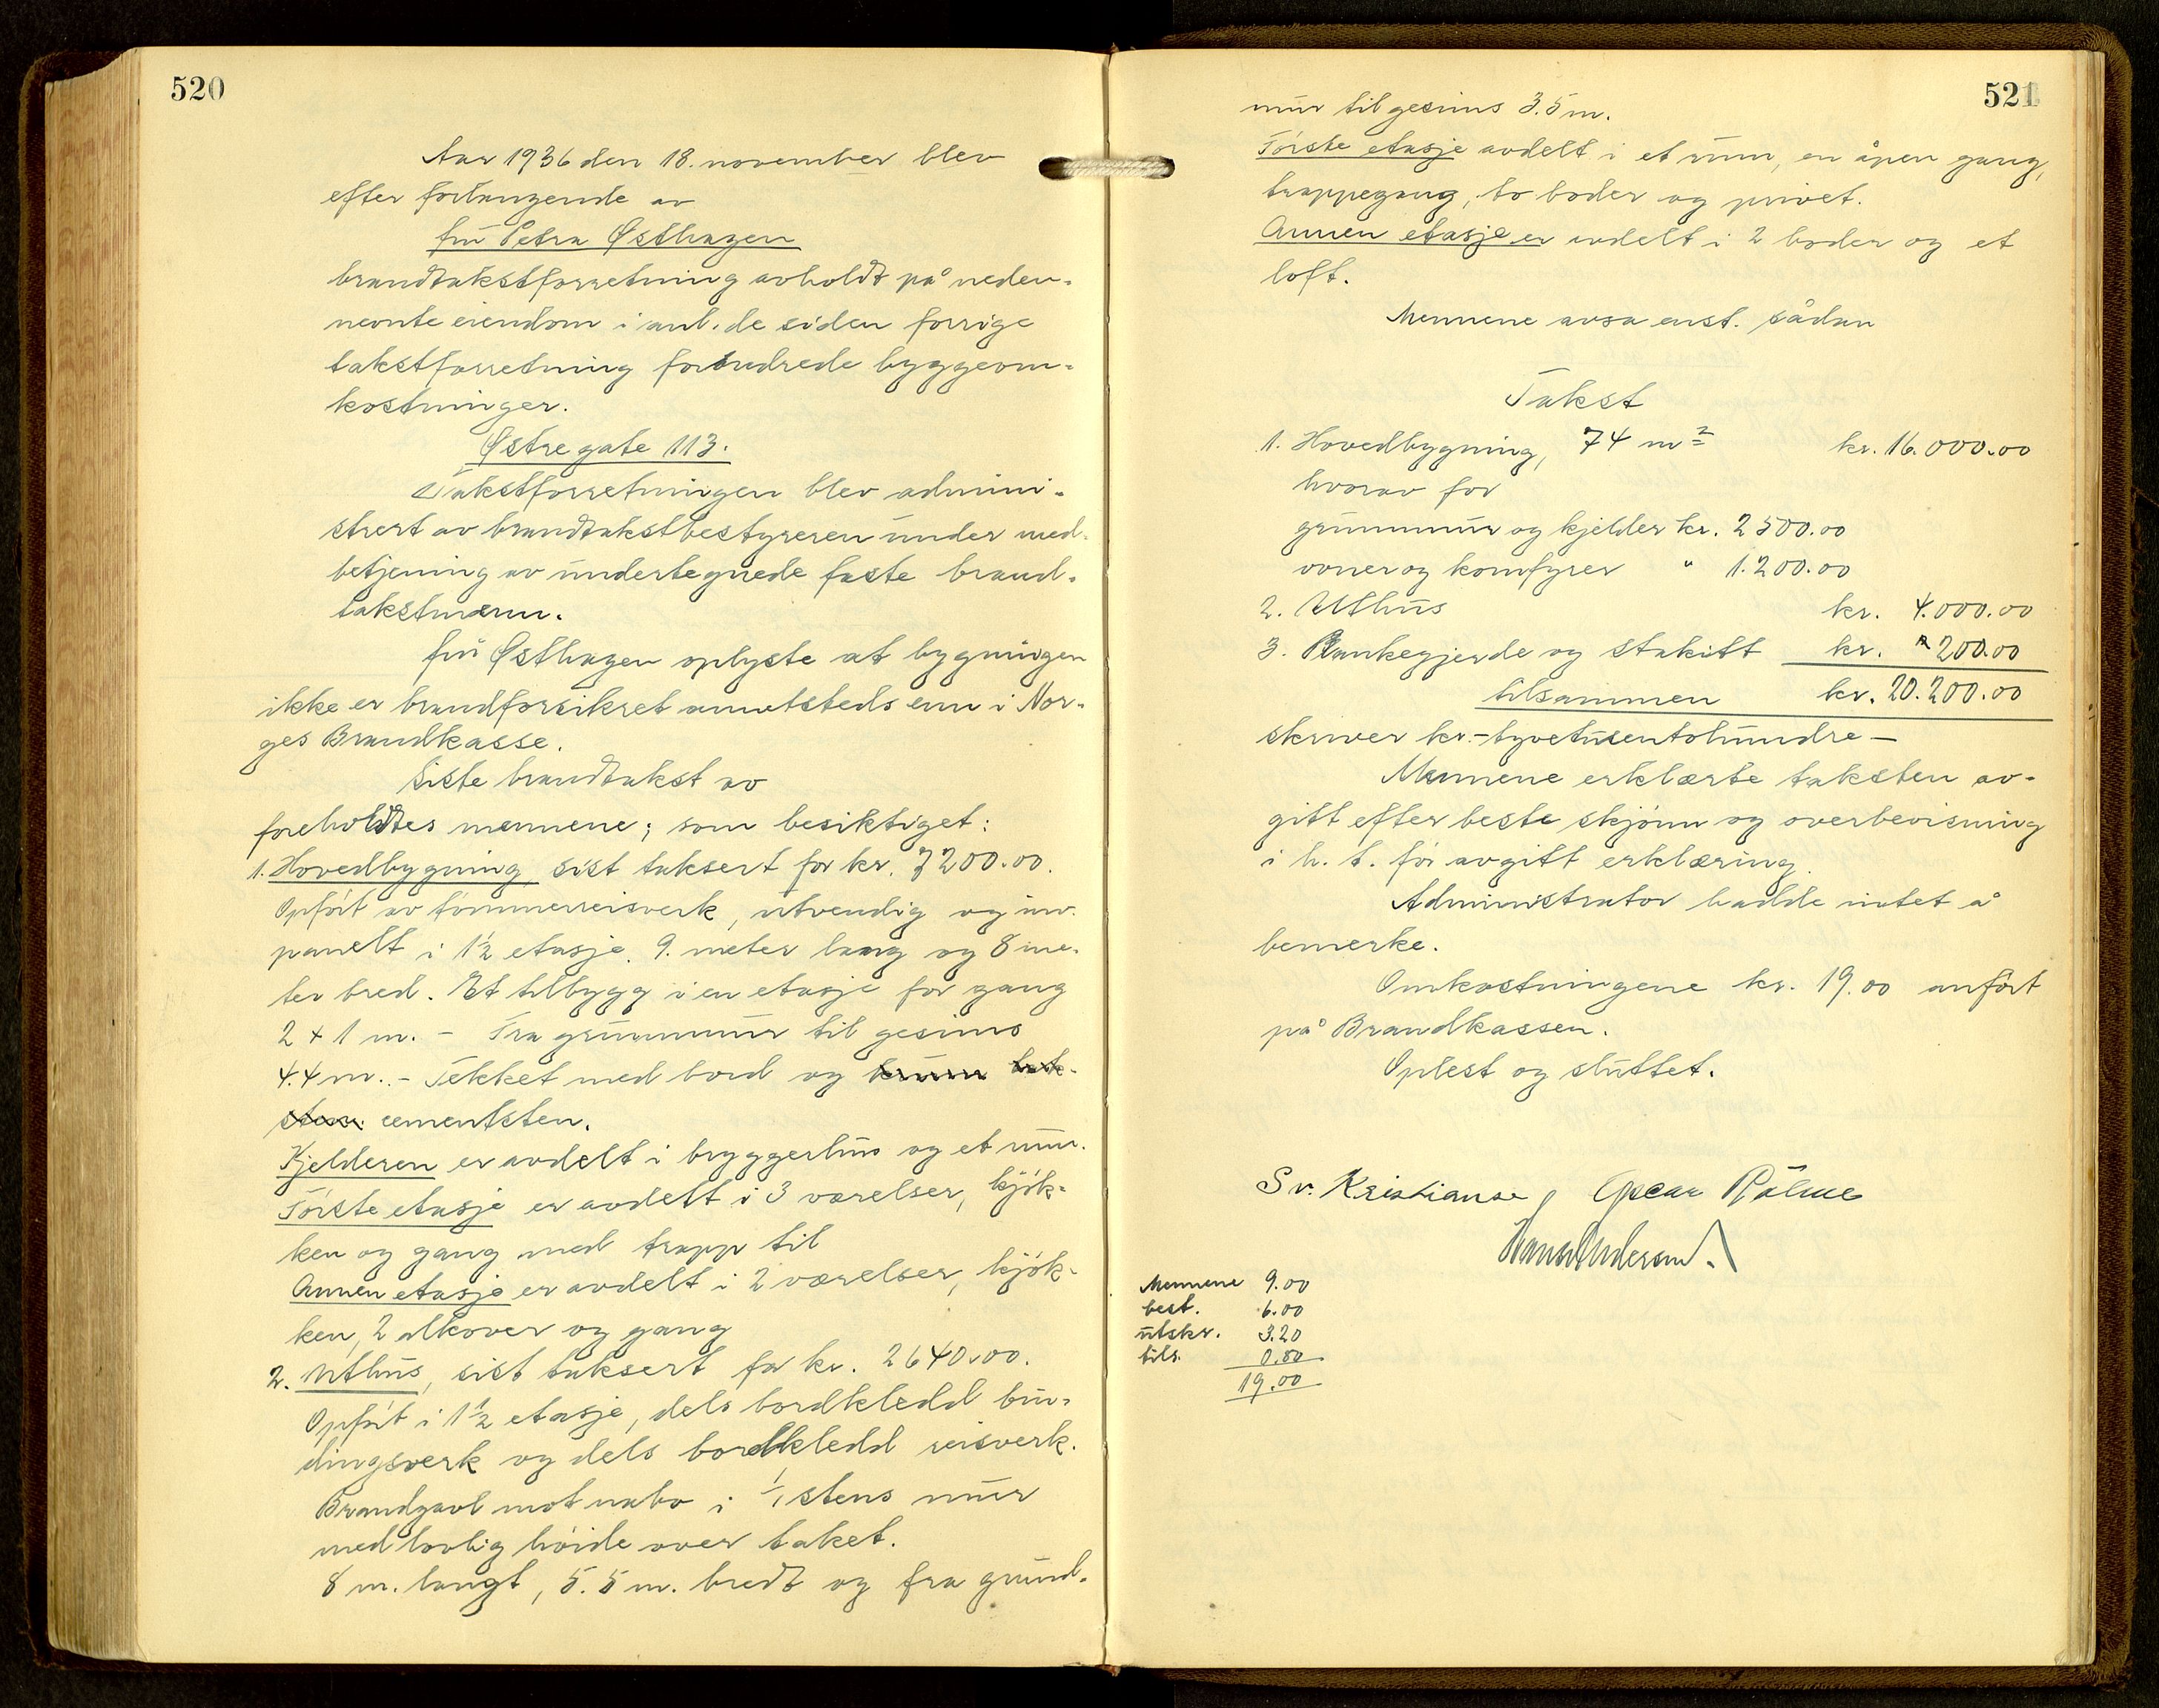 520
Aar 1936 den 18. november blev
efter forlangende av
fru Petra Østhagen
brandtakstforretning avholdt på neden-
nevnte eiendom i anl. de siden forrige
takstforretning forandrede byggeom-
kostninger.
Østre gate 113.
Takstforretningen blev admini-
strert av brandtakstbestyreren under med-
betjening av undertegnede faste brand-
takstmenn.
fru Østhagen oplyste at bygningen
ikke er brandforsikret annetsteds enn i Nor-
ges Brandkasse.
Siste brandtakst av
foreholdtes mennene; som besiktiget:
1. Hovedbygning sist taksert for kr. 7200.00.
Opført av tømmerreisverk, utvendig og inv.
panelt i 1½ etasje. 9. meter lang og 8 me-
ter bred. Et tilbygg i en etasje for gang
2 + 1 m. - Fra grunnmur til gesims
4.4 m. - Tekket med bord og
cementsten.
Kjelderen er avdelt i bryggerhus og et rum.
Første etasje er avdelt i 3 værelser, kjøk-
ken og gang med trapp til
Annen etasje er avdelt i 2 værelser, kjøk-
ken, 2 alkover og gang
2. Uthus, sist taksert for kr. 2640.00.
Opført i 1½ etasje, dels bordkledd bin-
dingsverk og dels bordkledd reisverk.
Brandgavl mot nabo i 1/1 stens mur
med lovlig høide over taket.
8 m. langt, 5.5 m. bredt og fra grund-
521
mur til gesims 3.5 m.
Første etasje avdelt i et rum, en åpen gang,
trappegang, to boder og privet.
Annen etasje er avdelt i 2 boder og et
loft.
Mennene avsa enst. sådan
Takst
1. Hovedbygning, 74 m² kr. 16.000.00
hvorav for
grunnmur og kjelder kr. 2500.00
ovner og komfyrer " 1.200.00
2. Uthus kr. 4.000.00
3. Plankegjerde og stakitt kr. 200.00
tilsammen kr. 20.200.00
skriver kr.-tyvetusentohundre-
Mennene erklærte taksten av-
gitt efter beste skjønn og overbevisning
i h. t. før avgitt erklæring.
Administrator hadde intet å
bemerke.
Omkostningene kr. 19.00 anført
på Brandkassen.
Oplest og sluttet.
Sv. Kristianse Oscar
Hans Andersen.
Mennene 9.00
best. 6.00
utskr. 3.20
tils. 0.80
19.00